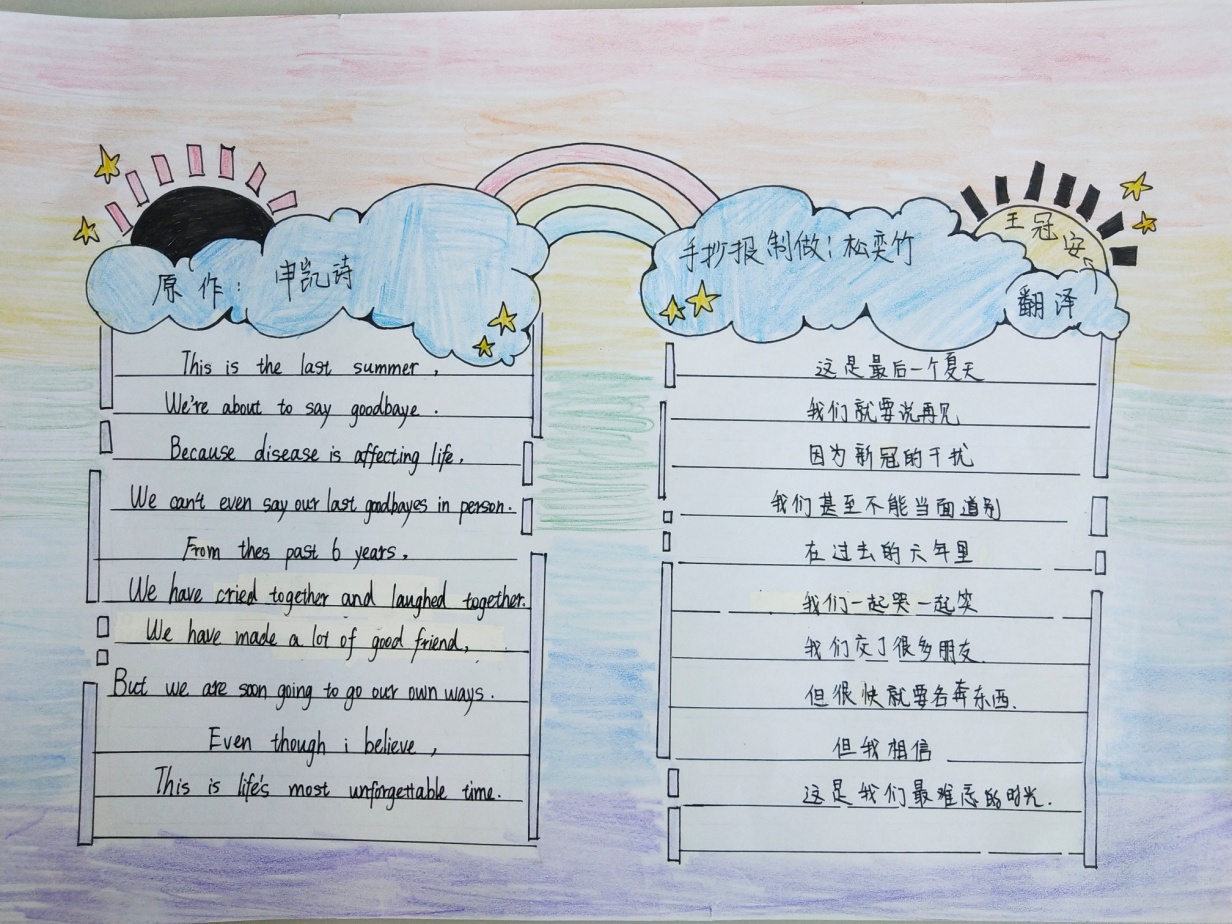 原作：申凯诗
This is the last summer,
We're about to say goodbaye.
Because disease is affecting life,
We can't even say our last goodbayes in person.
From thes past 6 years,
We have cried together and laughed together.
We have made a lot of good friend,
But we are soon going to go our own ways.
Even though i believe,
This is life's most unforgettable time.
手抄报制做：松奕竹
王冠安
翻译
这是最后一个夏天
我们就要说再见
因为新冠的干扰
我们甚至不能当面道别
在过去的六年里
我们一起哭一起笑
我们交了很多朋友.
但很快就要各奔东西.
但我相信
这是我们最难忘的时光.